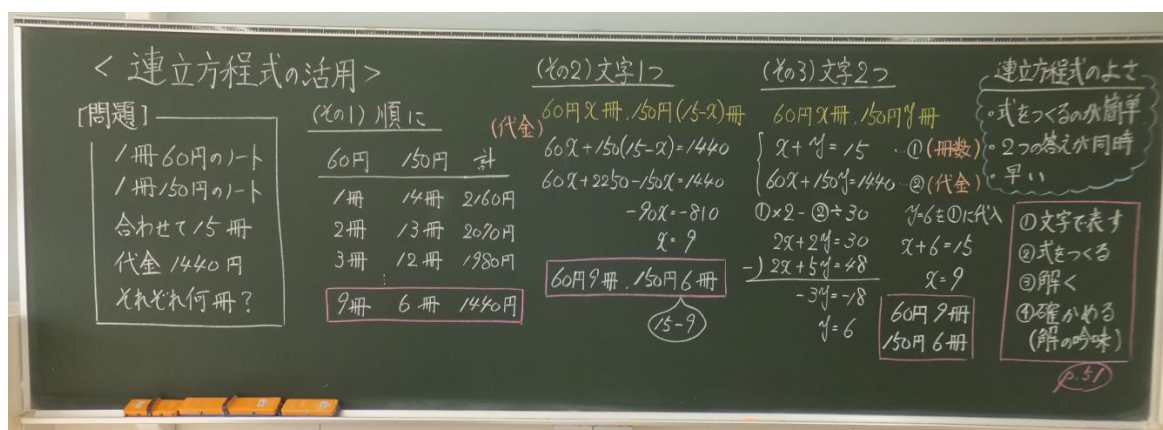 ＜連立方程式の活用＞
[問題]
1冊60円のノート
1冊150円のノート
合わせて15冊
代金1440円
それぞれ何冊?
(その1) 順に
60円 150円 計
1冊 14冊 2160円
2冊 13冊 2070円
3冊 12冊 1980円
⋮
9冊 6冊 1440円
(その2) 文字1つ
60円x冊、150円(15-x)冊
(代金)
60x+150(15-x)=1440
60x+2250-150x=1440
-90x=-810
x=9
60円9冊、150円6冊
15-9
(その3) 文字2つ
60円x冊、150円y冊
x+y=15 …①(冊数)
60x+150y=1440…②(代金)
①×2-②÷30
2x+2y=30
-) 2x+5y=48
-3y=-18
y=6
y=6を①に代入
x+6=15
x=9
60円9冊
150円6冊
連立方程式のよさ
・式をつくるのが簡単
・2つの答えが同時
・早い
①文字で表す
②式をつくる
③解く
④確かめる
(解の吟味)
p.51